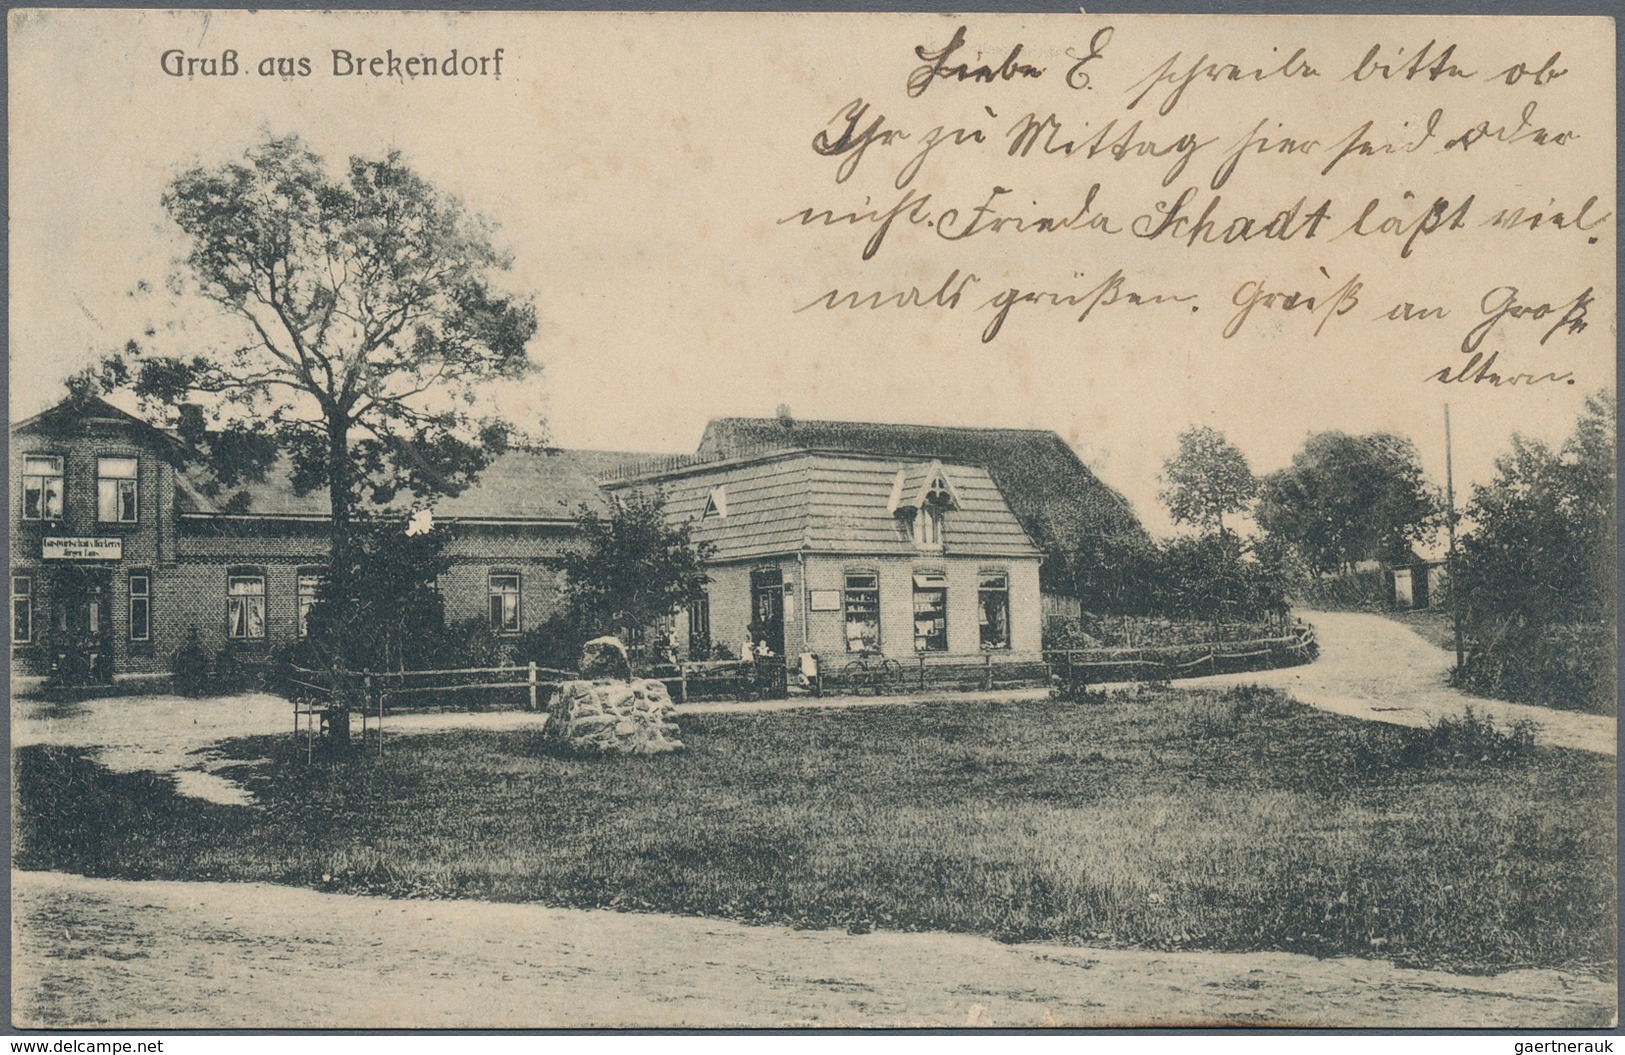 Gruß aus Brekendorf
Liebe E. schreibe bitte ob
Ihr zu Mittag hier seid oder
nicht. Frieda Schadt läßt viel-
mals grüßen. Gruß an Groß-
eltern.
Gastwirtschaft u. Bäckerei
Jürgen
www.delcampe.net
gaertnerauk